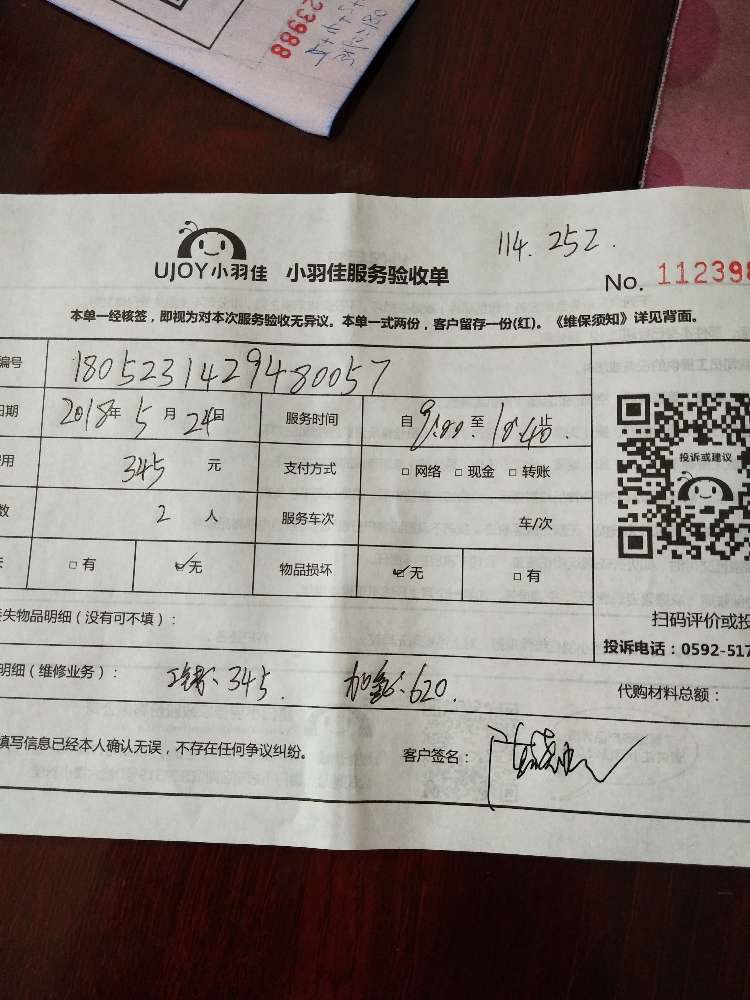 23988
114.252.
UJOY小羽佳 小羽佳服务验收单
No. 112398
本单一经核签，即视为对本次服务验收无异议。本单一式两份，客户留存一份(红)。《维保须知》详见背面。
编号 1805231429480057
日期 2018年 5 月 24日 服务时间 自 9:00 至 18:40 止
用 345 元 支付方式 □ 网络 □ 现金 □ 转账
数 2 人 服务车次 车/次
□ 有 ☑无 物品损坏 ☑无 □ 有
投诉或建议
扫码评价或投
投诉电话：0592-517
失物品明细（没有可不填）：
明细（维修业务）： 工钱：345. 加氟：620. 代购材料总额：
填写信息已经本人确认无误，不存在任何争议纠纷。 客户签名：